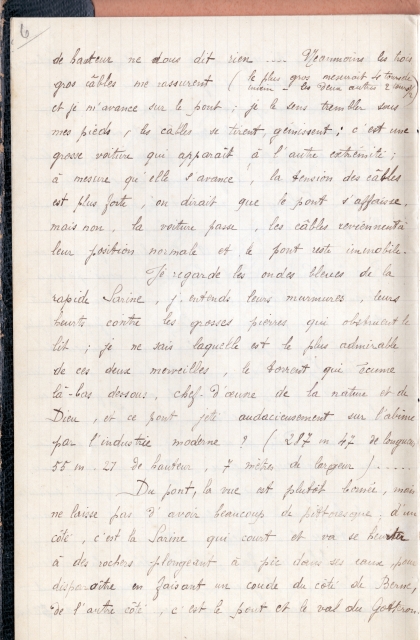 6
de hauteur ne vous dit rien .... Néanmoins les trois
gros câbles me rassurent ( le plus gros mesurait
les deux autres
et je m'avance sur le pont ; je le sens trembler sous
mes pieds, les câbles se tirent, gémissent ; c'est une
grosse voiture qui apparaît à l'autre extrémité ;
à mesure qu'elle s'avance, la tension des câbles
est plus forte, on dirait que le pont s'affaisse,
mais non, la voiture passe, les câbles reviennent à
leur position normale et le pont reste immobile.
Je regarde les ondes bleues de la
rapide Sarine, j'entends leurs murmures, leurs
heurts contre les grosses pierres qui obstruent le
lit ; je ne sais laquelle est le plus admirable
de ces deux merveilles, le torrent qui écume
là-bas dessous, chef-d'œuvre de la nature et de
Dieu, et ce pont jeté audacieusement sur l'abîme
par l'industrie moderne ? ( 287 m 47 de longueur
55 m. 27 de hauteur, 7 mètres de largeur ) .....
Du pont, la vue est plutôt bornée, mais
ne laisse pas d'avoir beaucoup de pittoresque, d'un
côté, c'est la Sarine qui court et va se heurter
à des rochers plongeant à pic dans ses eaux pour
disparaître en faisant un coude du côté de Berne,
de l'autre côté, c'est le pont et le val du Gotteron,